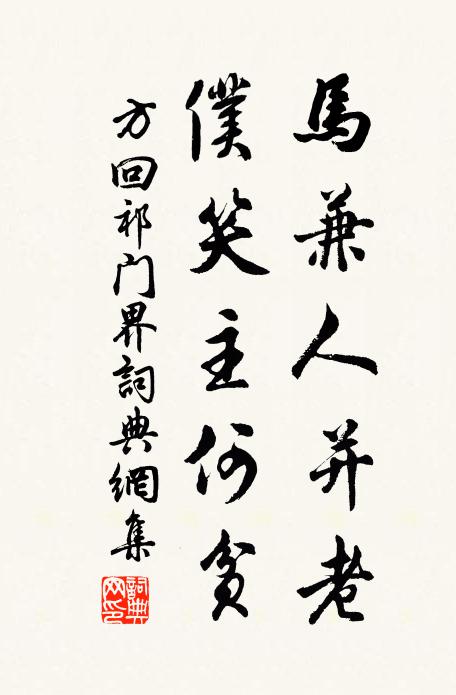 馬兼人并老
僕笑主何貧
方回祁門界詞典網集
詞典網印